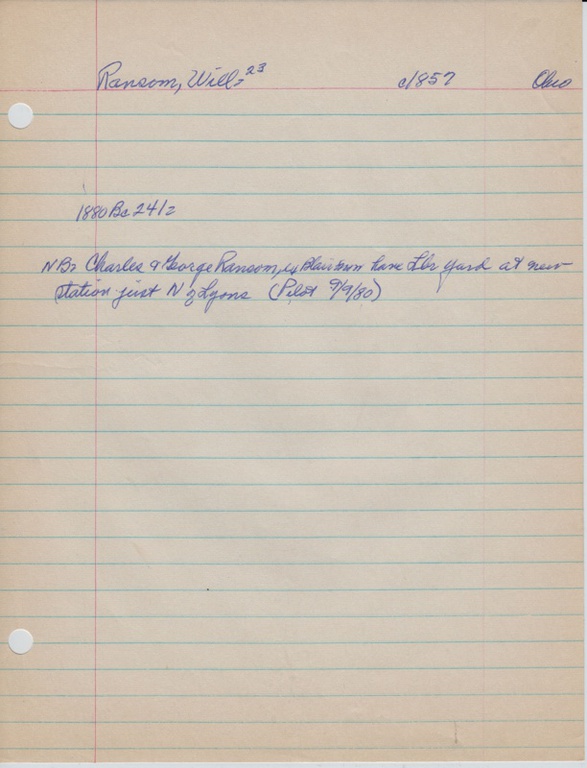 Ransom, Will 23 c1857 Ohio
1880 Ba 241/2
NB: Charles & George Ransom, of Blairstown have Lbr yard at new
station just N of Lyons (Pilot 9/9/80)